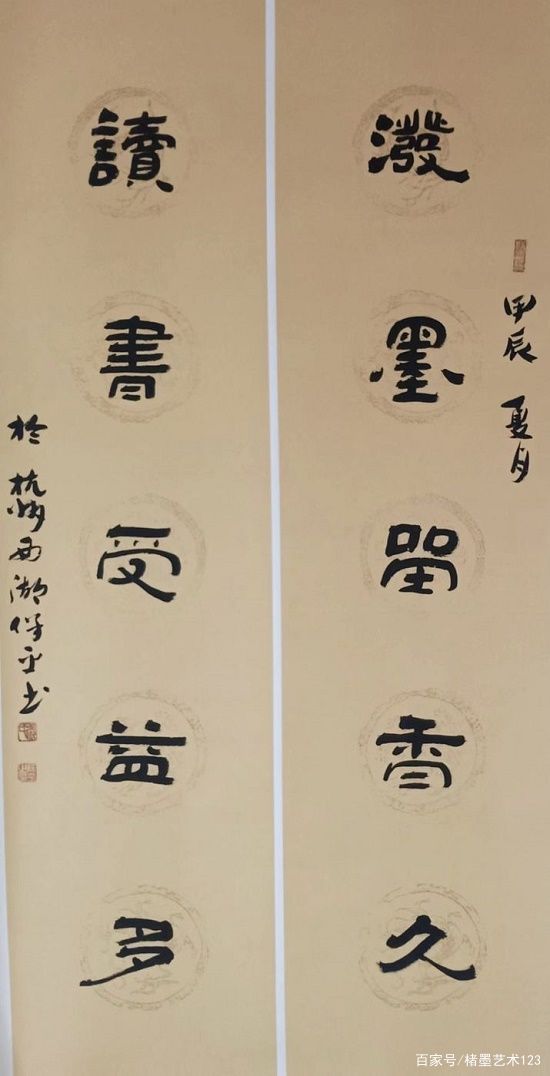 甲辰 夏月
潑墨留香久
讀書受益多
於 杭州西湖保平书
百家号/楮墨艺术123